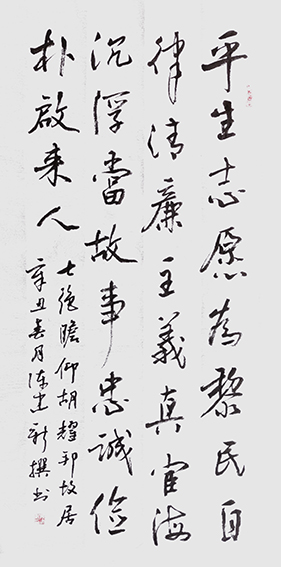 平生志愿为黎民自
律清廉主義真宦海
沉浮当故事忠诚俭
朴啟来人
七绝瞻仰胡耀邦故居
辛丑春月陈忠新撰书